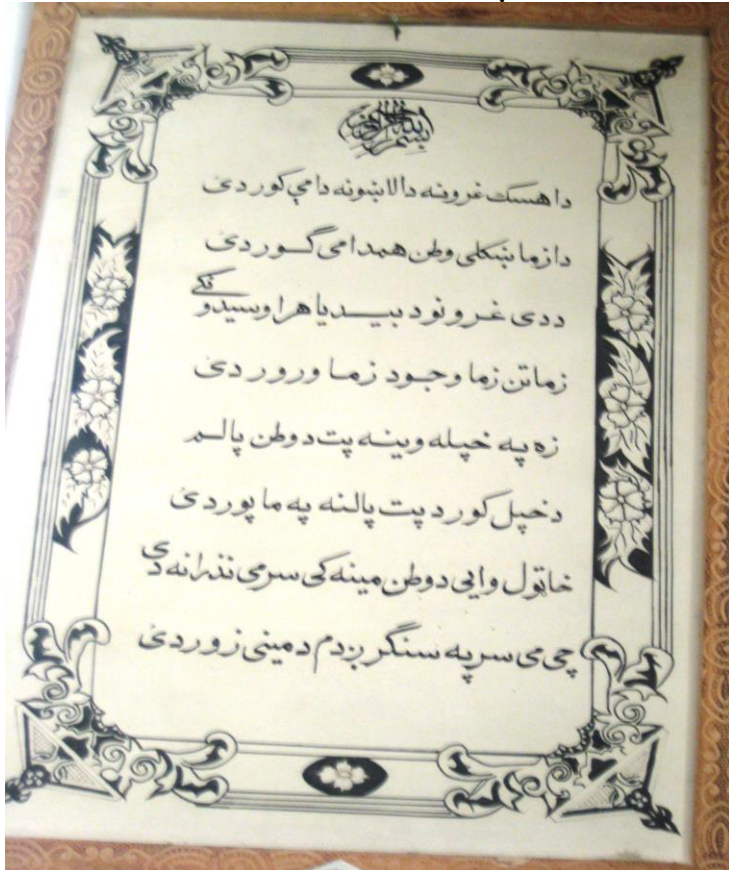 بسم الله الرحمن الرحیم
دا هسک غرونه دا لاښونه دا مې کور دئ
دا زما ښکلی وطن همدا می گور دئ
ددی غرونو د بیدیا هر اوسیدونکے
زما تن زما وجود زما ورور دئ
زه په خپله وینه پت د وطن پالم
د خپل کور د پت پالنه په ما پور دئ
خاتول وایی د وطن مینه کی سر می نذرانه دی
چی می سر په سنگر بږدم د مینی زور دئ